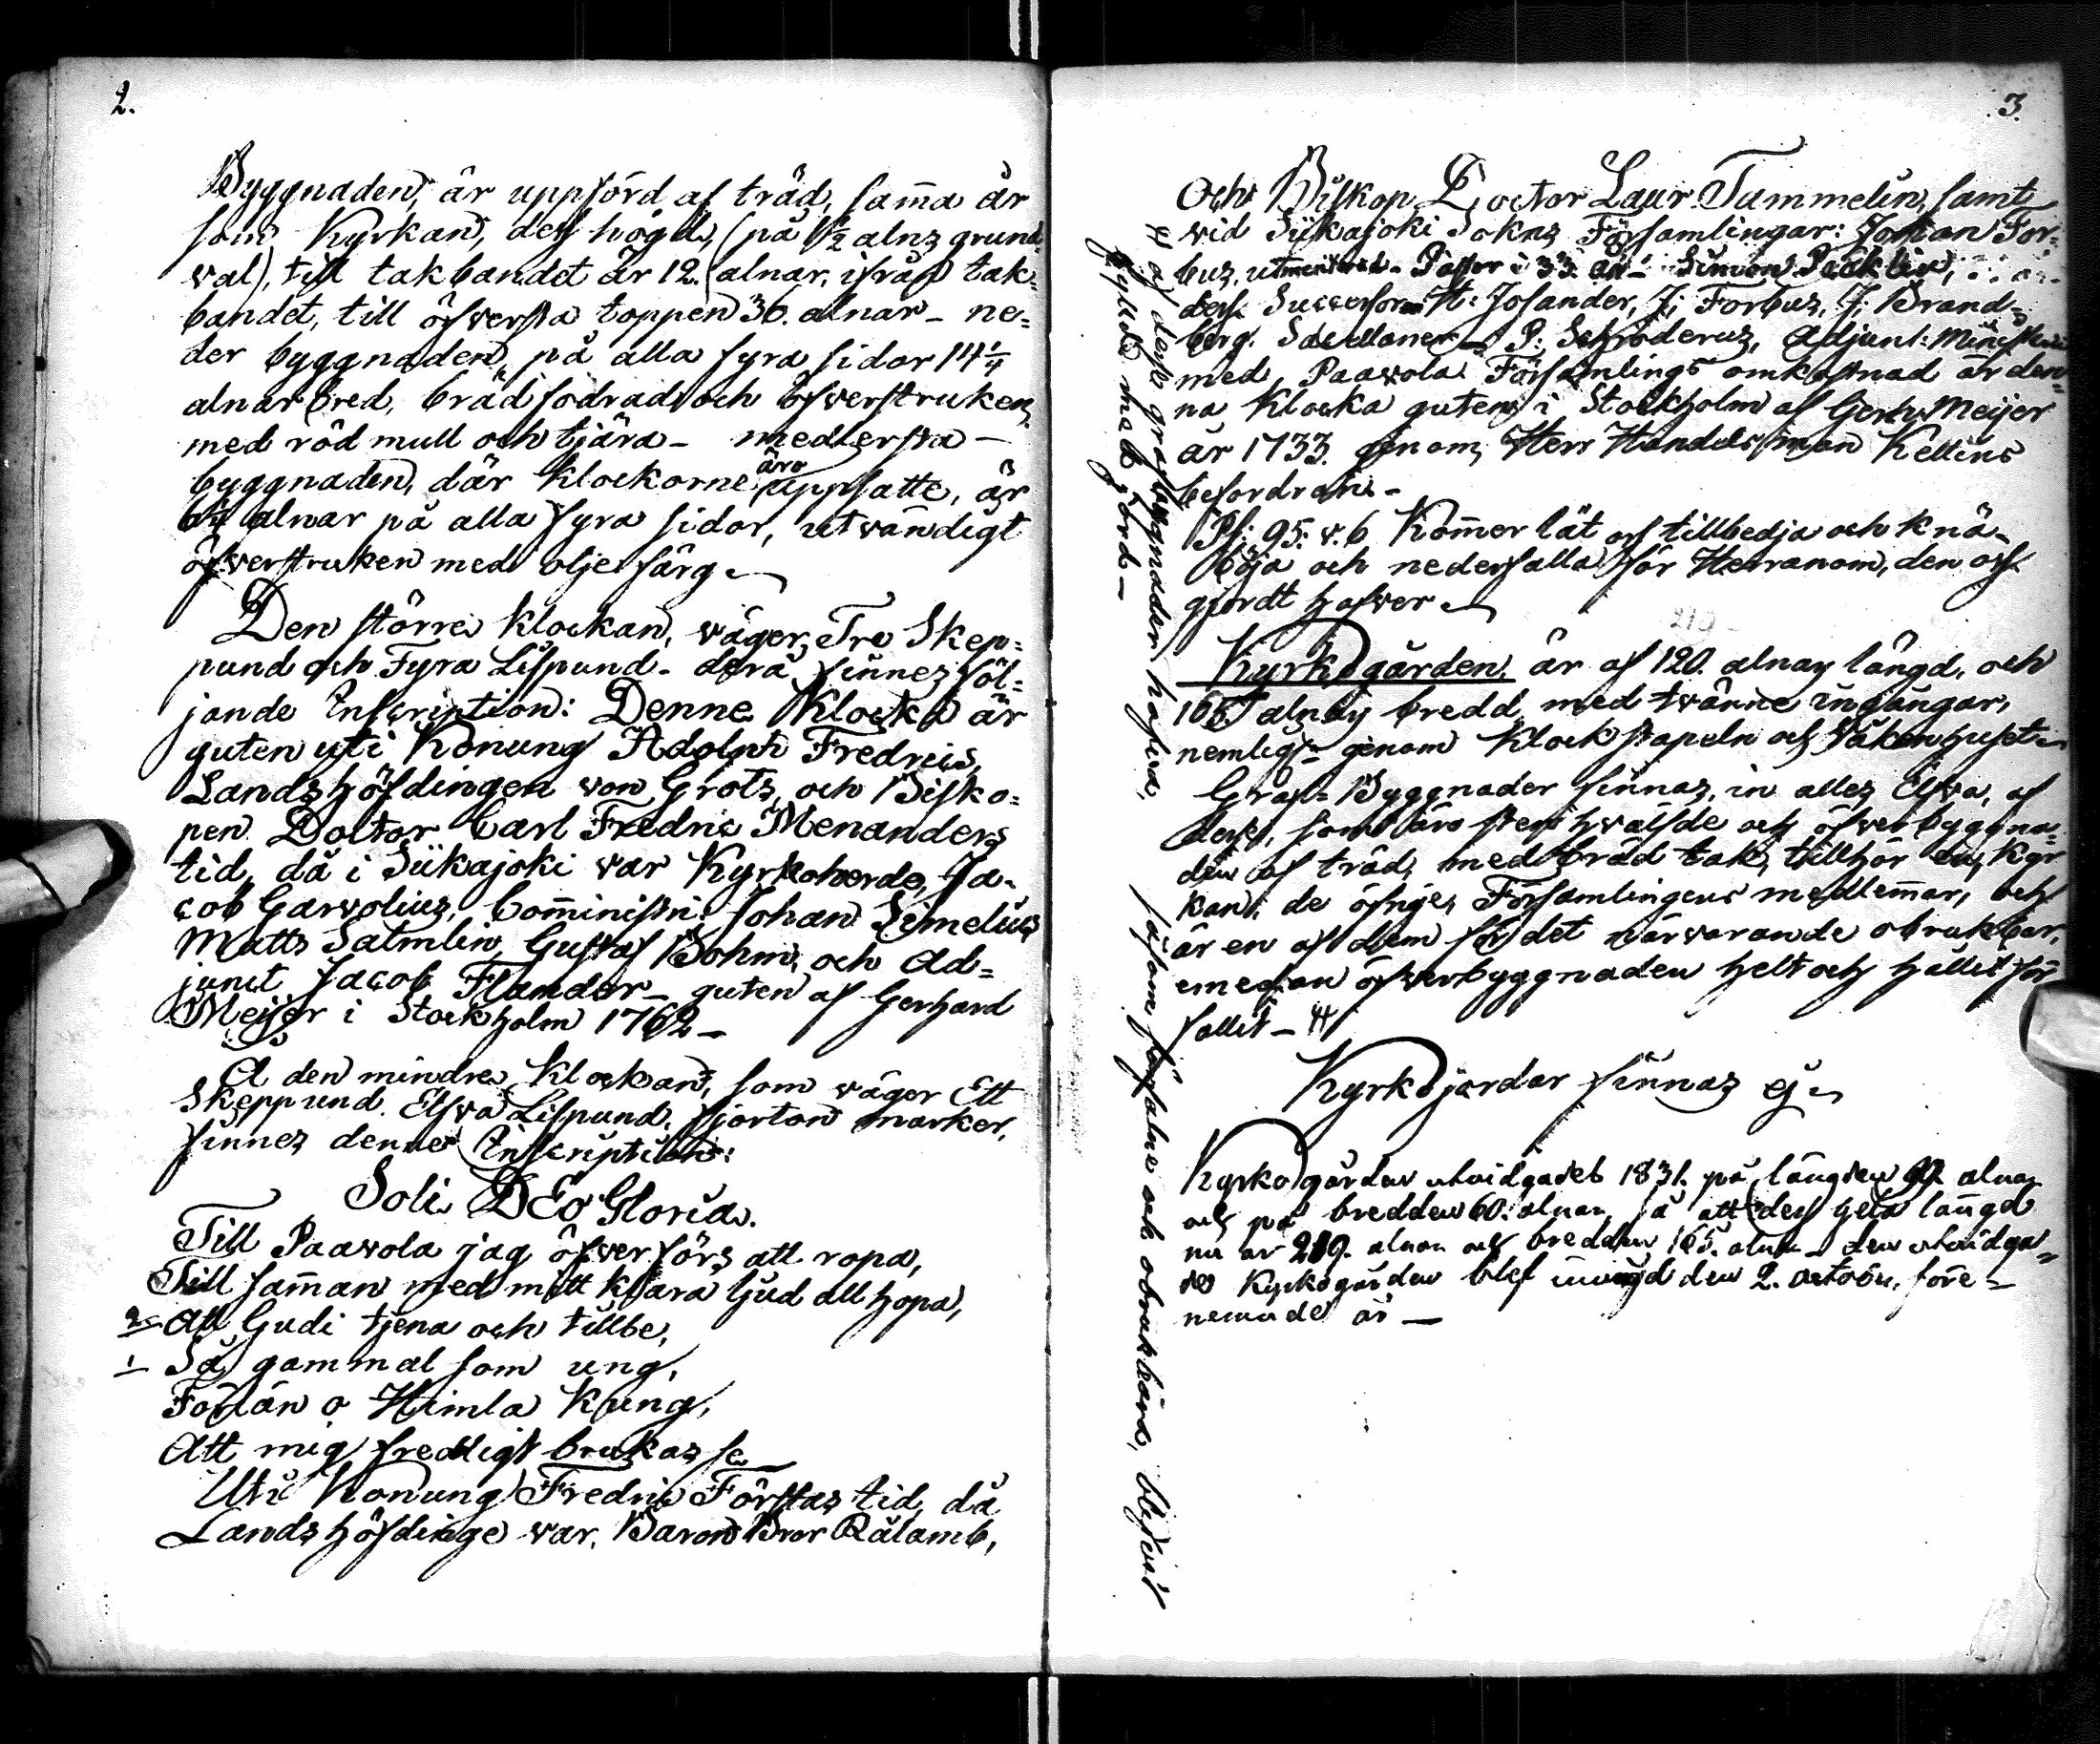 2.
Byggnaden, är uppförd af träd, samma år
som Kyrkan, dess högd, (på 1½ alns grund-
val), till takbandet är 12. alnar, ifrån tak-
bandet, till öfversta toppen 36. alnar - ne-
der byggnaden, på alla fyra sidor 14¼
alnar bred, brädfodrad och öfverstruken
med röd mull och tjära - medlersta -
byggnaden, där klockorne äro uppsatte, är
6¼ alnar på alla fyra sidor, utvändigt
öfverstruken med oljefärg.
Den större klockan, väger, Tre Skep-
pund och Fyra Lispund. derå finnes föl-
jande Inscription: Denne Klocka är
guten uti Konung Adolph Fredrics,
Landshöfdingen von Grots, och Bisko-
pen Doctor Carl Fredric Menanders
tid, då i Siikajoki var Kyrkoherde, Ja-
cob Garvolius, Comministri: Johan Simelius
Matts Salmlin, Gustaf Bohm, och Ad-
junct Jacob Flander - guten af Gerhard
Meijer i Stockholm 1762 -
Å den mindre Klockan, som väger Ett
Skeppund. Elfva Lispund. fjorton marker,
finnes denne Inscription:
Soli DEo Gloria.
Till Paavola jag öfverförs att ropa,
Till samman med mitt klara ljud allhopa,
2 Att Gudi tjena och tillbe,
1 Så gammal som ung,
Förlän o Himla Kung,
Att mig fredligt brukas se
Uti Konung Fredric Förstas tid, då
Landshöfdinge var, Baron Bror Rålamb,
3.
Och Biskop Doctor Laur. Tammelin, samt
vid Siikajoki Sokns Församlingar: Johan For-
bus, Pastor i 33. år - Simon Packlin,
dess Successor H: Josander, J: Forbus, J: Brand-
berg. Sacellaner - P: Schroderus, Adjunct: Ministerii
med Paavola Församlings omkostnad är den-
na Klocka guten i Stockholm af Gerh. Meijer
år 1733. genom Herr Handelsman Kellins
befordran -
Ps: 95: v. 6 Kommer låt oss tillbedja och knä-
böja och nederfalla för Herranom, den oss
gjordt hafver.
219
Kyrkogården, är af 120. alnars längd, och
165 alnars bredd, med tvänne ingångar,
nemligen genom Klockstapeln och Vakenhuset.
Graf-Byggnader finnas, in alles Elfva, af
dess, som äro sten hvälfde och öfverbyggna-
den af träd, med bräd tak, tillhör en, Kyr-
kan, de öfrige, Församlingens medlemmar, och
är en af dem för det närvarande obrukbar,
emedan öfverbyggnaden helt och hållit för-
fallit - #
Kyrkojordar finnas ej.
Kyrkogården utvidgades 1831. på längden 99 alnar
och på bredden 60. alnar, så att dess hela längd
nu är 219. alnar och bredden 165. alnar - den utvidga-
de Kyrkogården blef invigd den 2. October, före-
nemnde år -
# af dessa grafbyggnader hafva, såsom förfalne och obrukbara, blifvit
fyllde med jord -